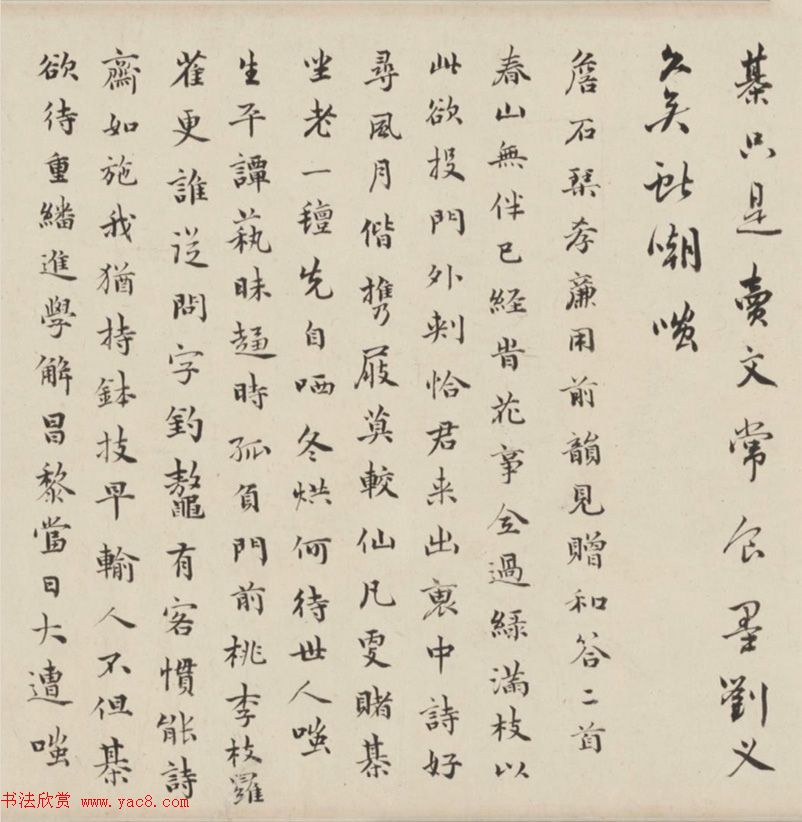 棊只是賣文常食墨劉义
久矣說嘲嗤
詹石琹孝廉用前韻見贈和答二首
春山無伴已經旹花事全過綠滿枝以
此欲投門外刺恰君来出裏中詩好
尋風月偕攜屐莫較仙凡更賭棊
坐老一氊先自哂冬烘何待世人嗤
生平譚蓺昧趨時孤負門前桃李枝羅
雀更誰從問字釣鼇有客慣能詩
齋如施我猶持鉢技早輸人不但棊
欲待重繙進學解昌黎當日大遭嗤
书法欣赏 www.yac8.com